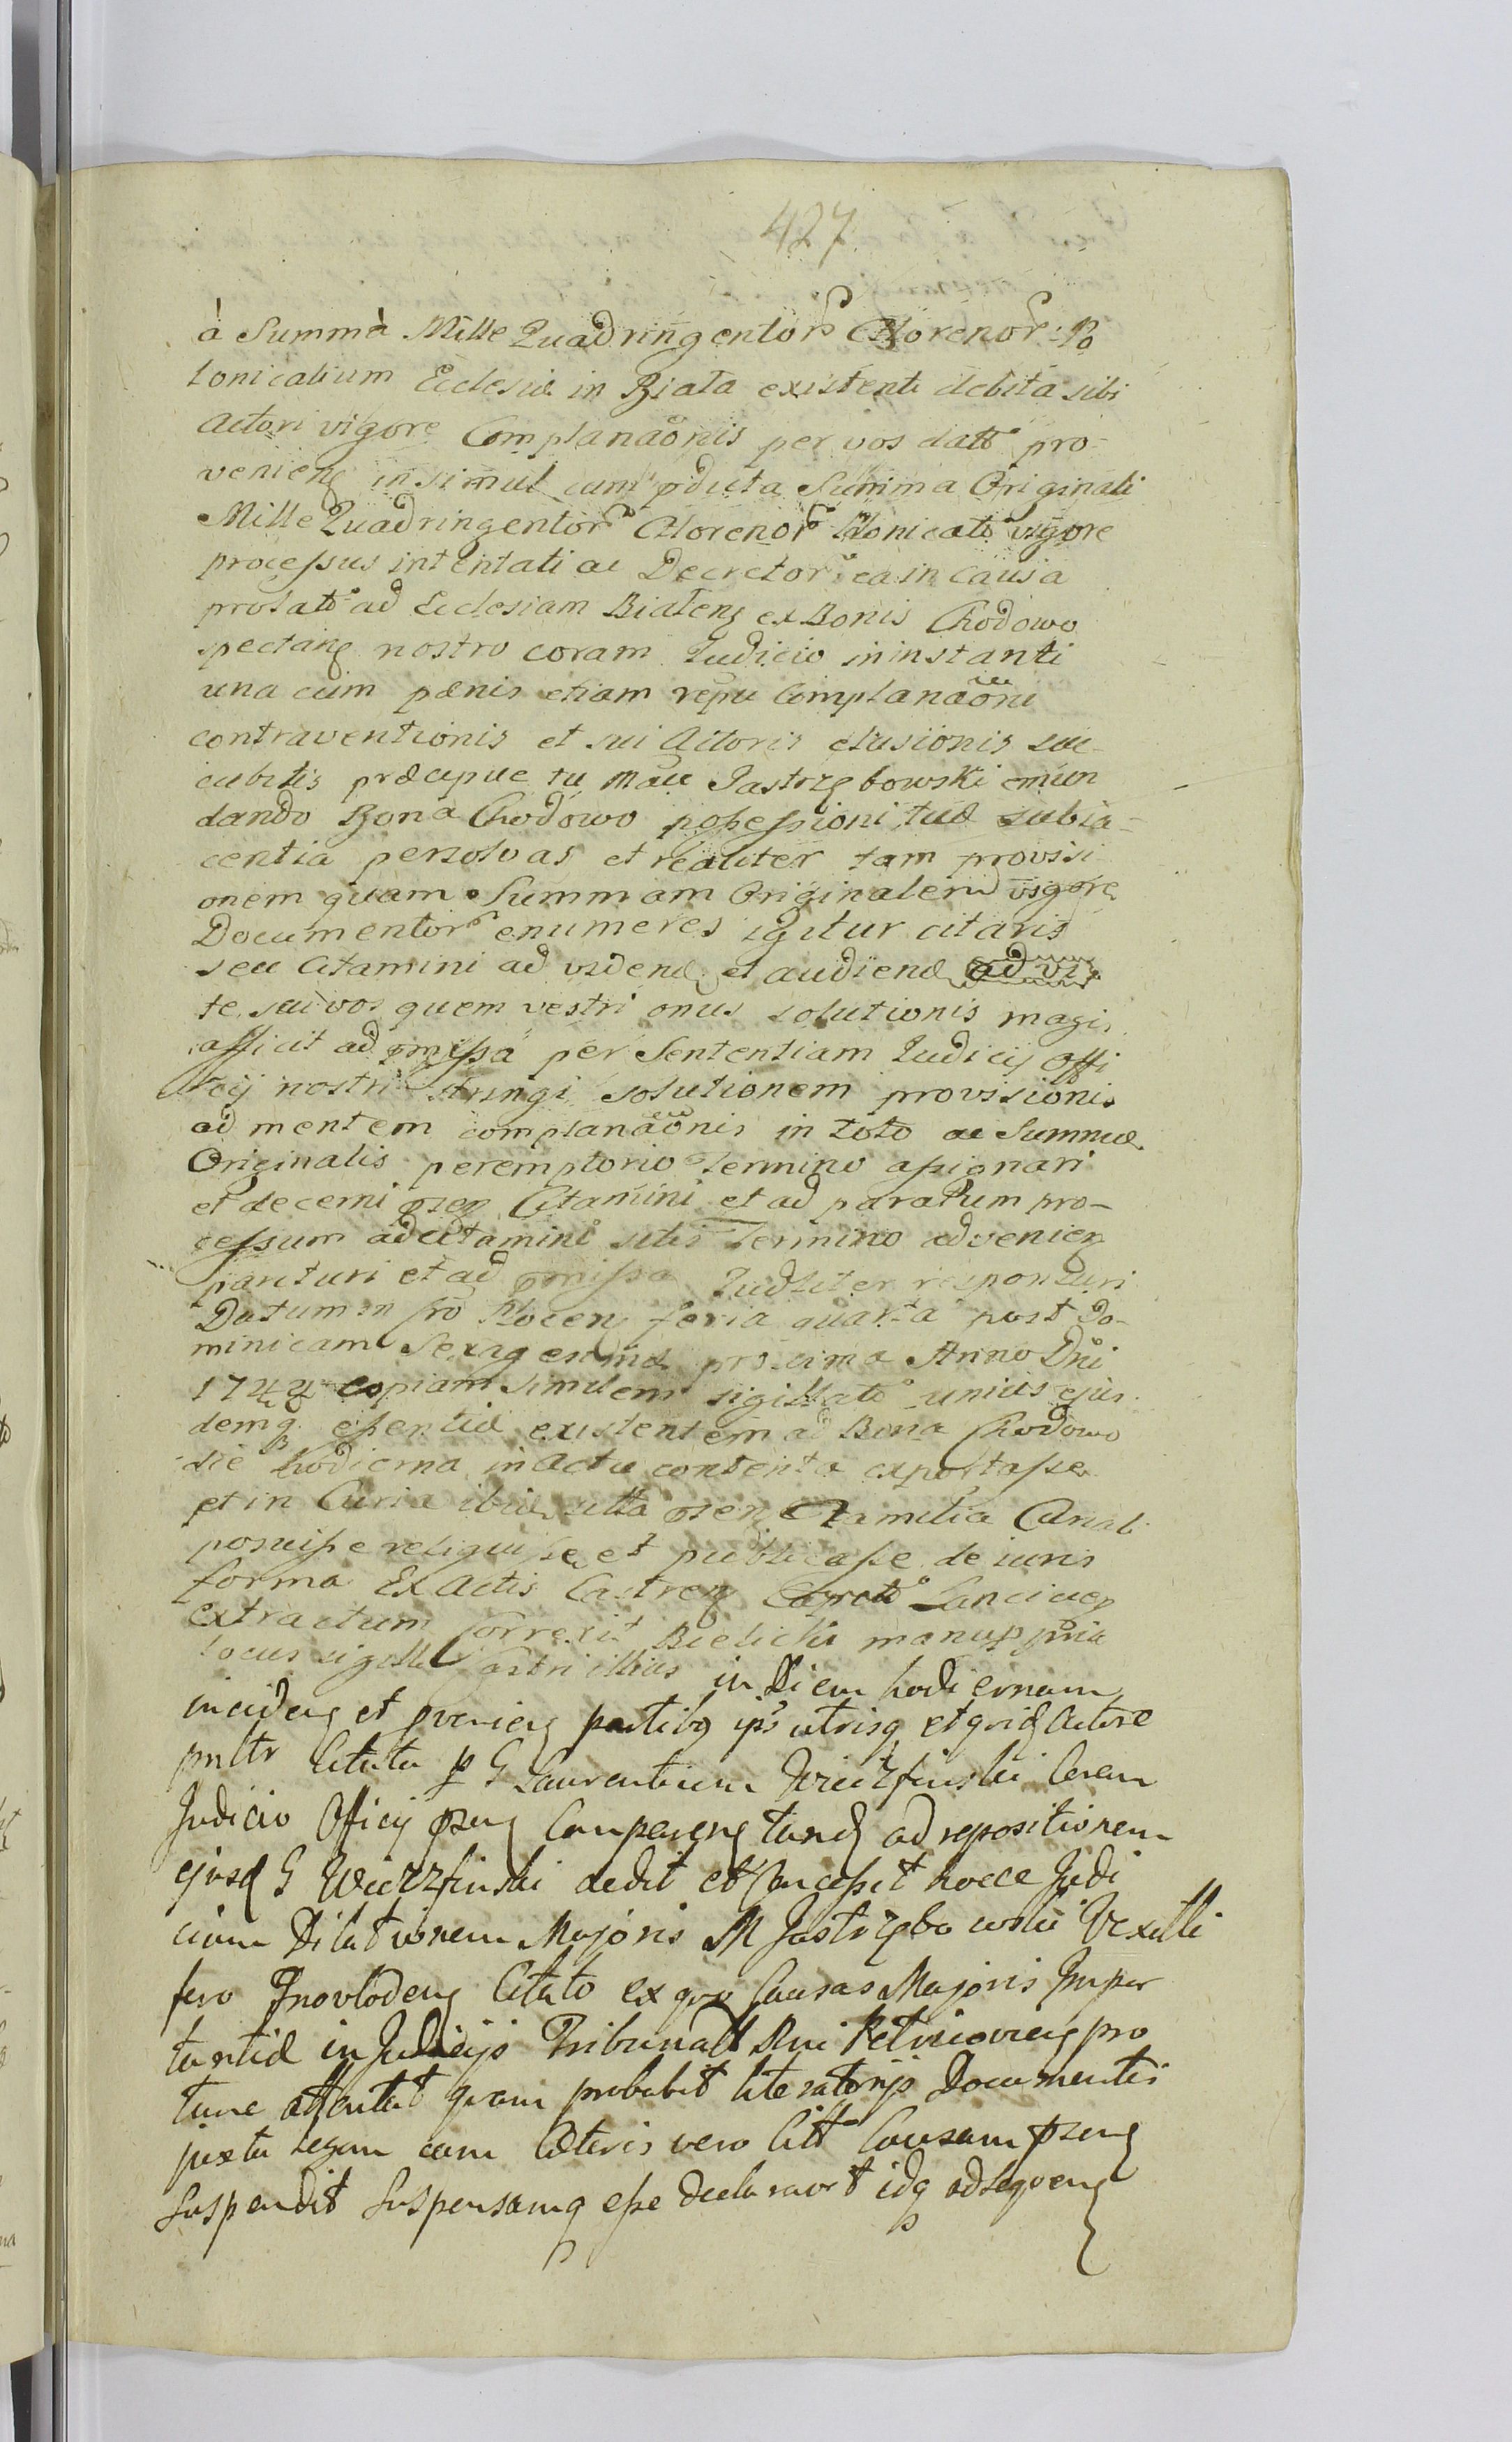 427
à Summa Mille Quadringentor Florenor: Po
lonicalium Eclesiæ in Biała existenti debita sibi
Actori vigore Complanaonis per vos dato pro-
venien insimul cum pdicta Summa Originali
Mille Quadringentor Florenor Plonicalo vigore
processus intentati ac Decretor ea in causa
prolato ad Eclesiam Białen ex Bonis Chodowo
spectan nostro coram Judicio in instanti
una cum pænis etiam repu Complanaoni
contraventionis et sui Actoris elusionis suc-
cubitis præcipue tu Mãce Jastrzębowski emun
dando Bona Chodowo possessioni tuæ subia-
centia persolvas et realiter tam provisi
onem quam Summam Originalem vigore
Documentor enumeres igitur citaris
seu Citamini ad videnđ et audienđ
te seu vos quem vestri onus solutionis magis
afficit ad pmissa per Sententiam Judicij Offi
cij nostri stringi solutionem provisionis
ad mentem complanaonis in toto ac Summæ
Originalis peremptorio termino assignari
et decerni psen Citamini et ad paratum pro-
cessum adcitamini sitis Termino advenien
parituri et ad pmissa Judliter responsuri
Datum in Cro Plocen feria quarta post Do-
minicam Sexagesimæ proxima Anno Dni
1744 copiam similem sigillato unius ejus-
demq essentiæ existentem ad Bona Chodowo
die hodierna in Actu contenta exportasse
et in Curia ibid sitta psen
posuisse reliquisse et publicasse de iuris
forma Ex Actis Castren Lancicien
extractum Correxit Bielicki manupp pria
locus sigilli Castri illius in Diem hodiernam
inciden et pvenien partibq ips utrisq et quid Actore
pnltr Citato p G Laurentium Coram
Judicio Officij psen Comparen tand ad repositionem
ejusd G dedit et Concessit hocce Judi
cium Dilationem Majoris M Jastrzębowski Vexilli
fero Inovlođen Citato ex quo Causas Majoris Impor
tantiæ in Judicijs Tribunalt Rni Petricovien pro
tunc attentat quam probabit literatorijs Documentis
juxta legem cum Cæteris vero Citt Causam psen
suspendit suspensamq esse declaravit idq adseqven